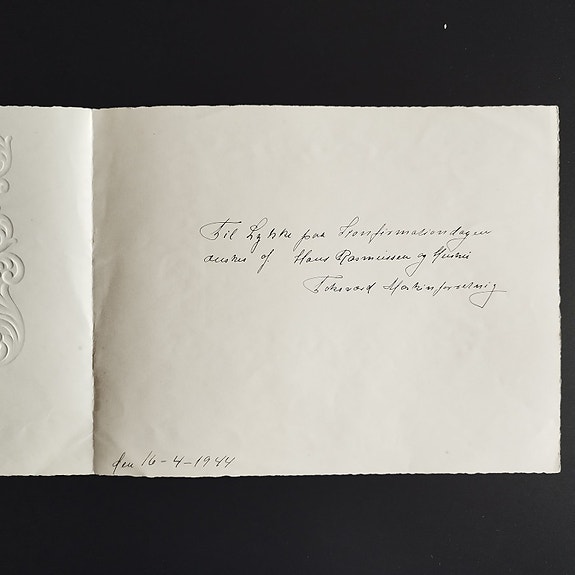 Til Lykke paa Konfirmationdagen
ønskes af Hans Rasmussen og Hustru
Maskinforretnig
den 16-4-1944